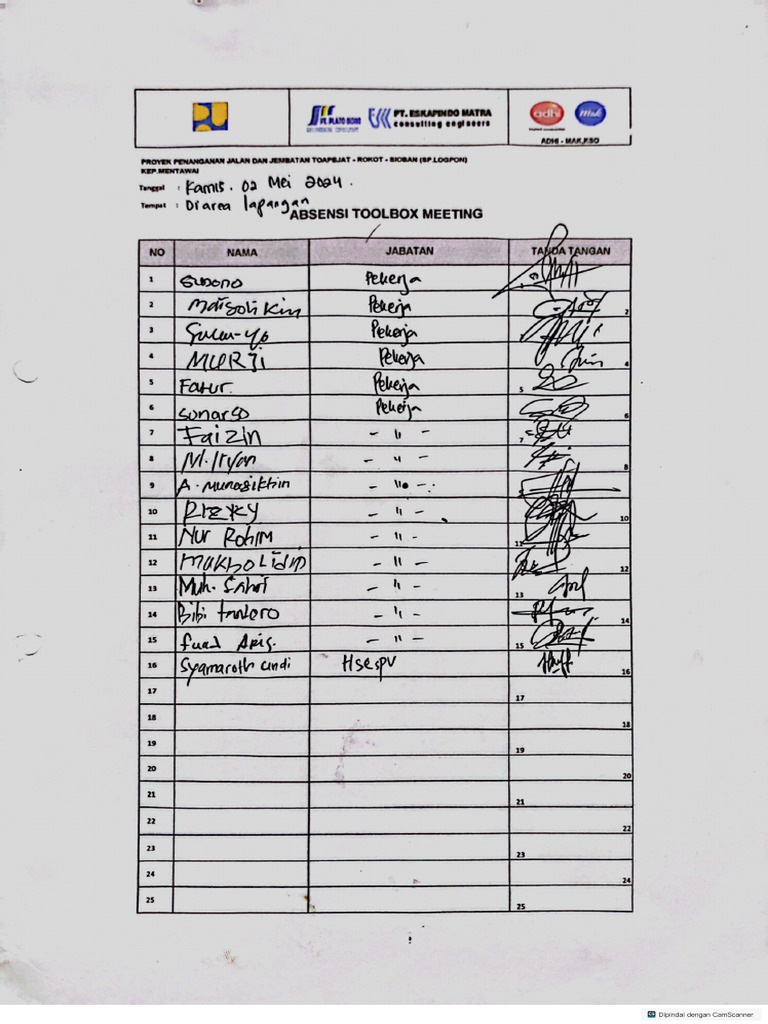 PT. PLATO ISOIKI
PT. ESKAPINDO MATRA
consulting engineers
adhi
MAK
ADHI - MAK,KSO
PROYEK PENANGANAN JALAN DAN JEMBATAN TOAPEJAT - ROKOT - SIOBAN (SP.LOGPON)
KEP.MENTAWAI
Tanggal : Kamis. 02 Mei 2024.
Tempat : Di area lapangan
ABSENSI TOOLBOX MEETING
NO NAMA JABATAN TANDA TANGAN
1 Subono Pekerja
2 Pekerja 2
3 Pekerja
4 MURJI Pekerja 4
5 Fatur. Pekerja 5
6 Sunarso Pekerja 6
7 Faizin - " - 7
8 M. Iryan - " - 8
9 A. Munasikhin - " -
10 RIZKY - " - 10
11 Nur Rohim - " - 11
12 MAKHOLIDIN - " - 12
13 Muh. Sahri - " - 13
14 Bibi - " - 14
15 Fuad Aris. - " - 15
16 Syamaroth andi Hse spv 16
17 17
18 18
19 19
20 20
21 21
22 22
23 23
24 24
25 25
Dipindai dengan CamScanner